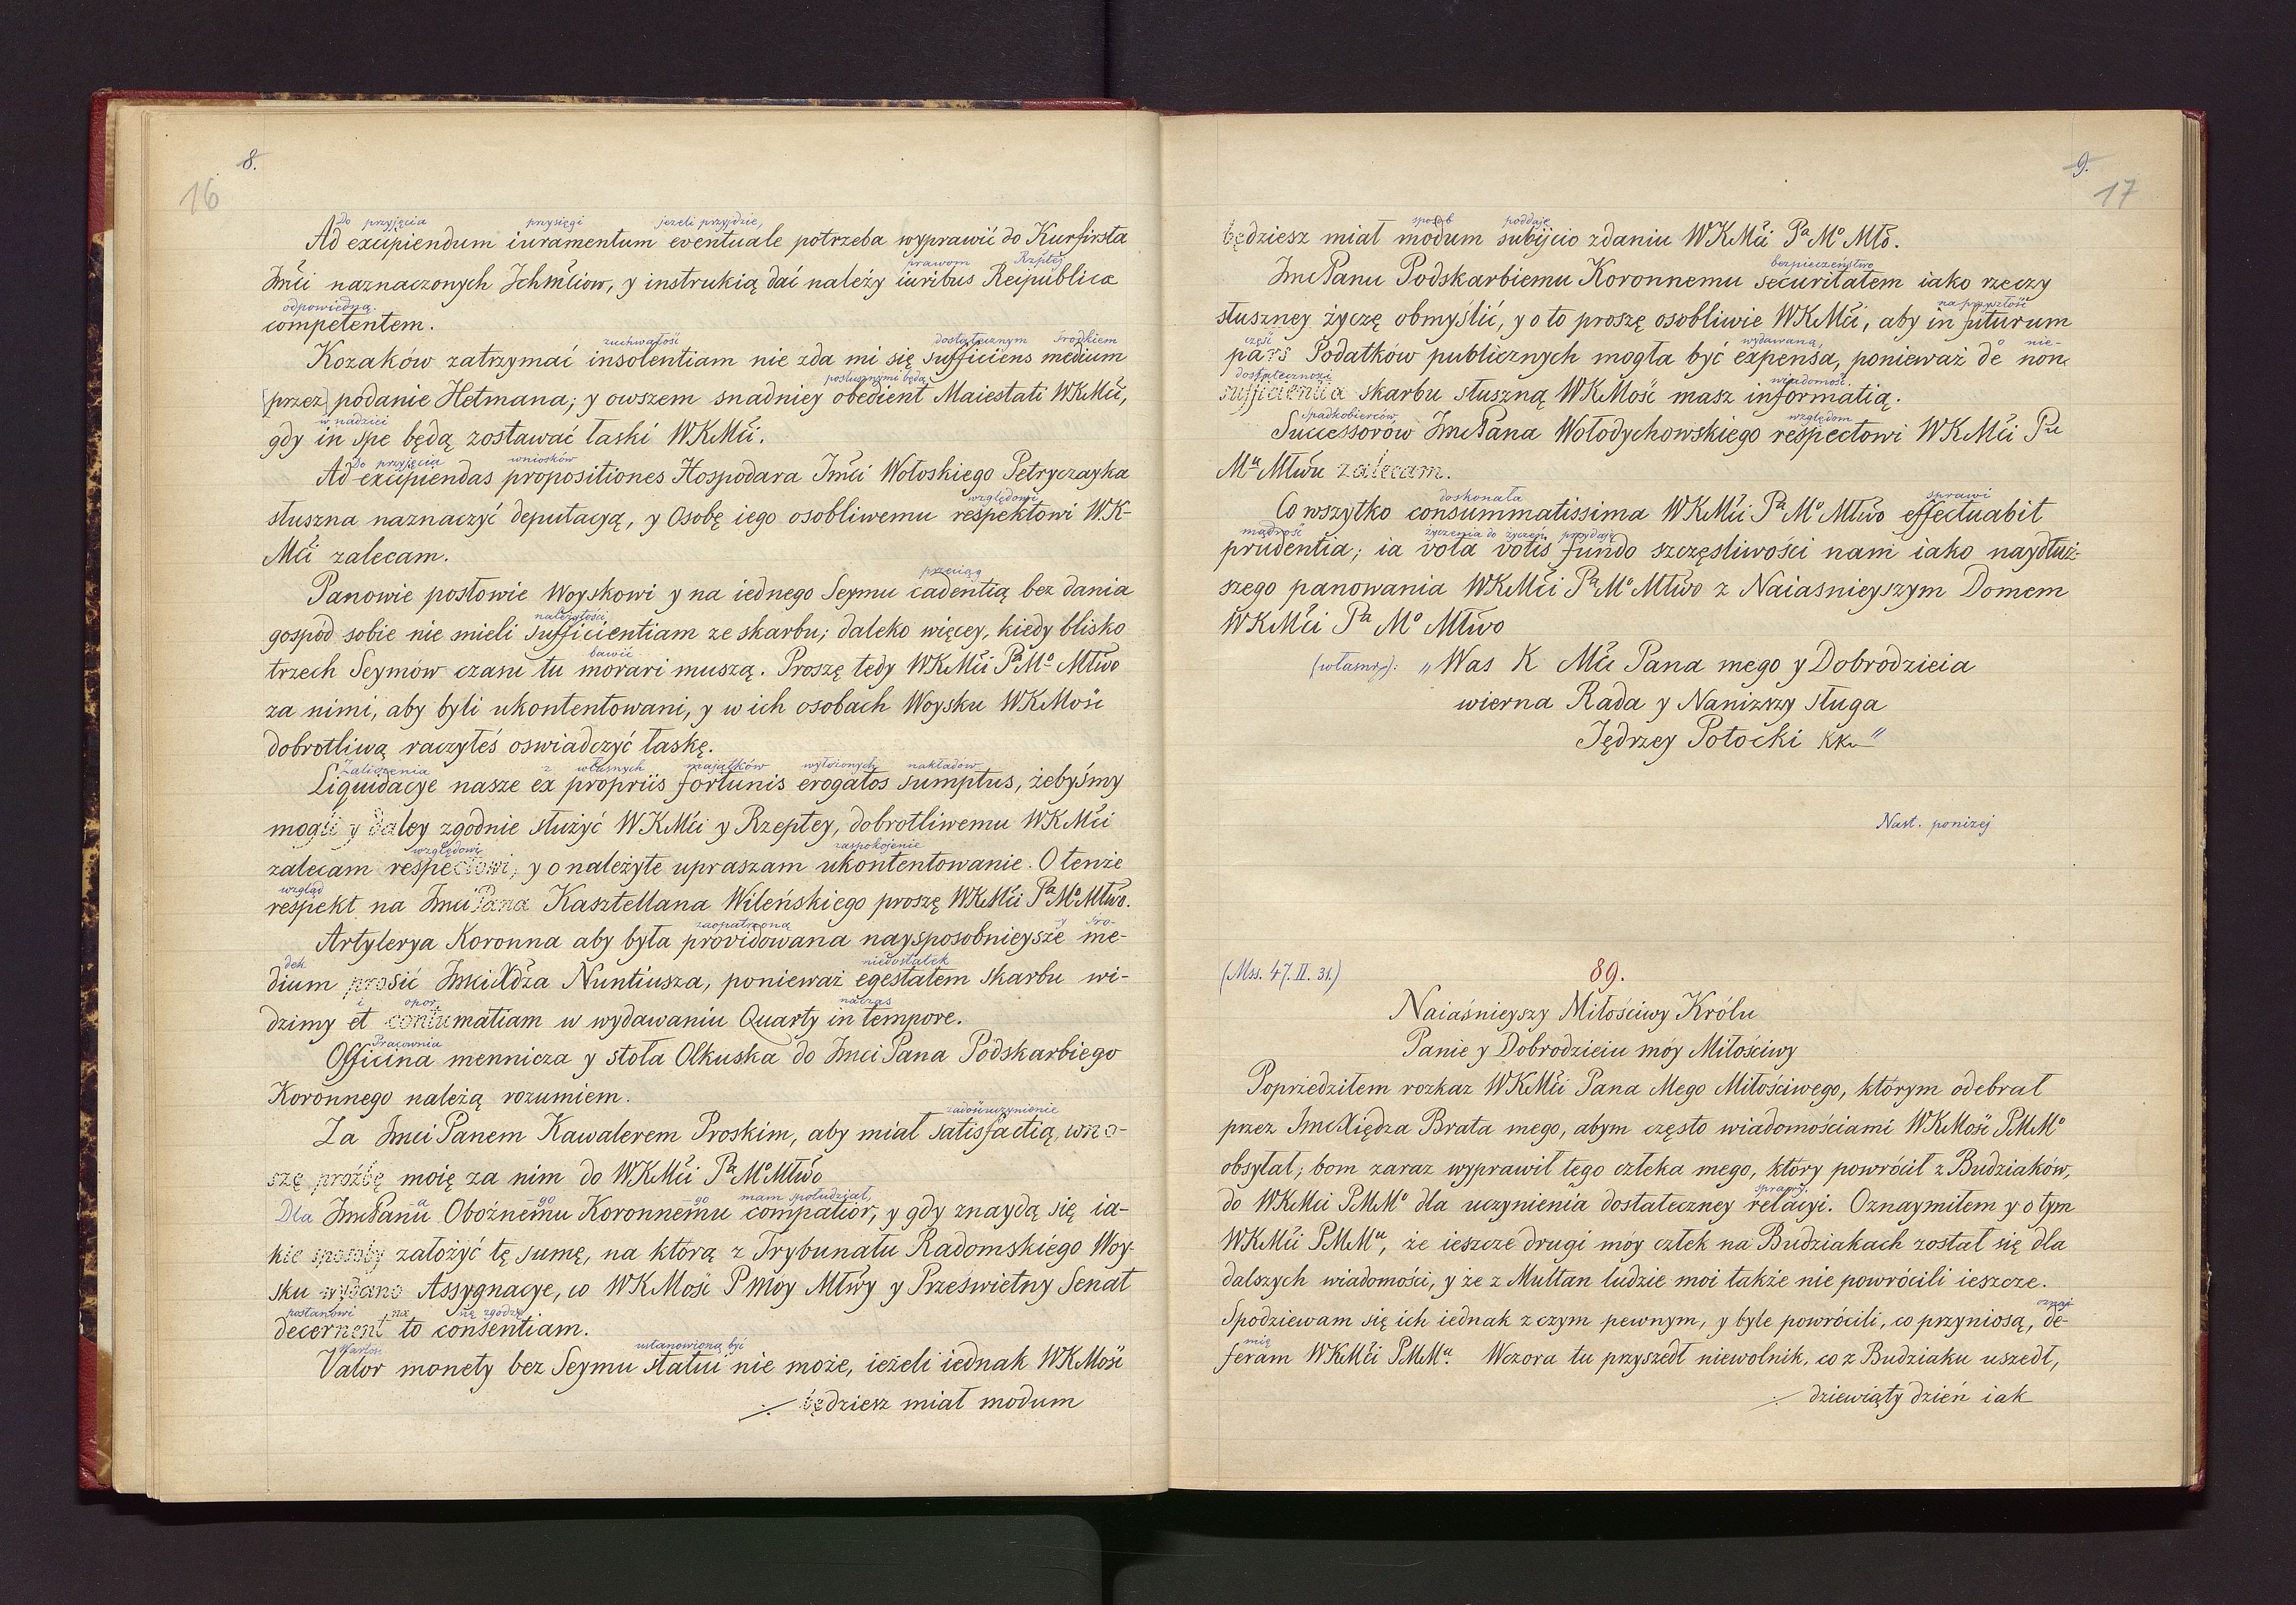 8.
16
Do przyjęcia przysięgi jeżeli przyjdzie,
Ad excipiendum iuramentum eventuale potrzeba wyprawić do Kurfirsta
prawom Rzpltej
Jmći naznaczonych Ichmćiow, y instrukią dać należy iuribus Reipublica
odpowiedną.
competentem.
zuchwałość dostatecznym środkiem
Kozaków zatrzymać insolentiam nie zda mi się sufficiens medium
posłusznymi będą
(przez) podanie Hetmana; y owszem snadniey obedient Maiestati WKMći,
w nadziei
gdy in spe będą zostawać łaski WKMći.
Do przyjęcia wniosków
Ad excipiendas propositiones Hospodara Jmći Wołoskiego Petryczayka
względowi
słuszna naznaczyć deputacyą, y Osobę iego osobliwemu respektowi WK-
Mći zalecam.
przeciąg
Panowie posłowie Woyskowi y na iednego Seymu cadentią bez dania
należytości
gospod sobie nie mieli sufficientiam ze skarbu; daleko więcey, kiedy blisko
bawić
trzech Seymów czasu tu morari muszą. Proszę tedy WKMći Pa Mo Młwo
za nimi, aby byli ukontentowani, y w ich osobach Woysku WKMość
dobrotliwą raczyłeś oswiadczyć łaskę.
Zaliczenia z własnych majątków wyłożonych nakładów
Liquidacye nasze ex propriis fortunis erogatos sumptus, żebyśmy
mogli y daley zgodnie służyć WKMći y Rzepltey, dobrotliwemu WKMći
względowi zaspokojenie
zalecam respectowi, y o należyte upraszam ukontentowanie. O tenże
wzgląd
respekt na Jmći Pana Kasztellana Wileńskiego proszę WKMći Pa Mo Młwo.
zaopatrzona -y śro-
Artylerya Koronna aby była providowana naysposobnieysze me-
dek niedostatek
dium prosić Jmći Xdza Nuntiusza, ponieważ egestatem skarbu wi-
i opor, na czas
dzimy et contumatiam w wydawaniu Quarty in tempore.
Pracownia
Officina mennicza y stoła Olkuska do Jmci Pana Podskarbiego
Koronnego należą rozumiem.
zadośćuczynienie
Za Jmci Panem Kawalerem Proskim, aby miał satisfactią, wno-
szę proźbę moię za nim do WKMći Pa Mo Młwo
a -go -go mam społudział,
Dla Jmć Panu Oboźnemu Koronnemu compatior, y gdy znaydą się ia-
kie sposoby założyć tę sumę, na którą z Trybunału Radomskiego Woy-
sku wydano Assygnacye, co WKMość P moy Młwy y Prześwietny Senat
postanowi na się zgodzę
decernent to consentiam.
Wartość ustanowioną być
Valor monety bez Seymu statui nie może, ieżeli iednak WKMość
będziesz miał modum
9.
17
sposób poddaję
będziesz miał modum subijcio zdaniu WKMći Pa Mo Młő.
bezpieczeństwo
Jmć Panu Podskarbiemu Koronnemu securitatem iako rzeczy
na przyszłość
słuszney życzę obmyślić, y o to proszę osobliwie WKMći, aby in futurum
część wydawaną, o nie-
pars Podatków publicznych mogła być expensa, ponieważ de non
dostateczności wiadomość.
sufficientia skarbu słuszną WKMość masz informatią.
Spadkobierców względom
Successorów Jmć Pana Wołodychowskiego respectowi WKMći Pu
Mu Młwu zalecam.
doskonała sprawi
Co wszytko consummatissima WKMći Pa Mo Młwo effectuabit
mądrość życzenia do życzeń przydaję
prudentia; ia vota votis fundo szczęsliwości nam iako naydłuż-
szego panowania WKMći Pa Mo Młwo z Naiasnieyszym Domem
WKMći Pa Mo Młwo
(własnor.): „Was K Mći Pana mego y Dobrodzieia
wierna Rada y Naniższy sługa
Jędrzey Potocki KK"
Nast. poniżej
(Mss. 47. II. 31.)
89.
Naiaśnieyszy Miłościwy Królu
Panie y Dobrodzieiu móy Miłościwy
Poprzedziłem rozkaz WKMći Pana Mego Miłościwego, którym odebrał
przez Jmć Xiędza Brata mego, abym często wiadomościami WKMość PMMo
obsyłał; bom zaraz wyprawił tego człeka mego, który powrócił z Budziaków,
sprawy.
do WKMći PMMo dla uczynienia dostateczney relacyi. Oznaymiłem y o tym
WKMći PMMu, że ieszcze drugi móy człek na Budziakach został się dla
dalszych wiadomości, y że z Multan ludzie moi także nie powrócili ieszcze.
oznaj-
Spodziewam się ich iednak z czym pewnym, y byle powrócili, co przyniosą, de-
mię
feram WKMći PMMu. Wczora tu przyszedł niewolnik, co z Budziaku uszedł,
dziewiąty dzień iak